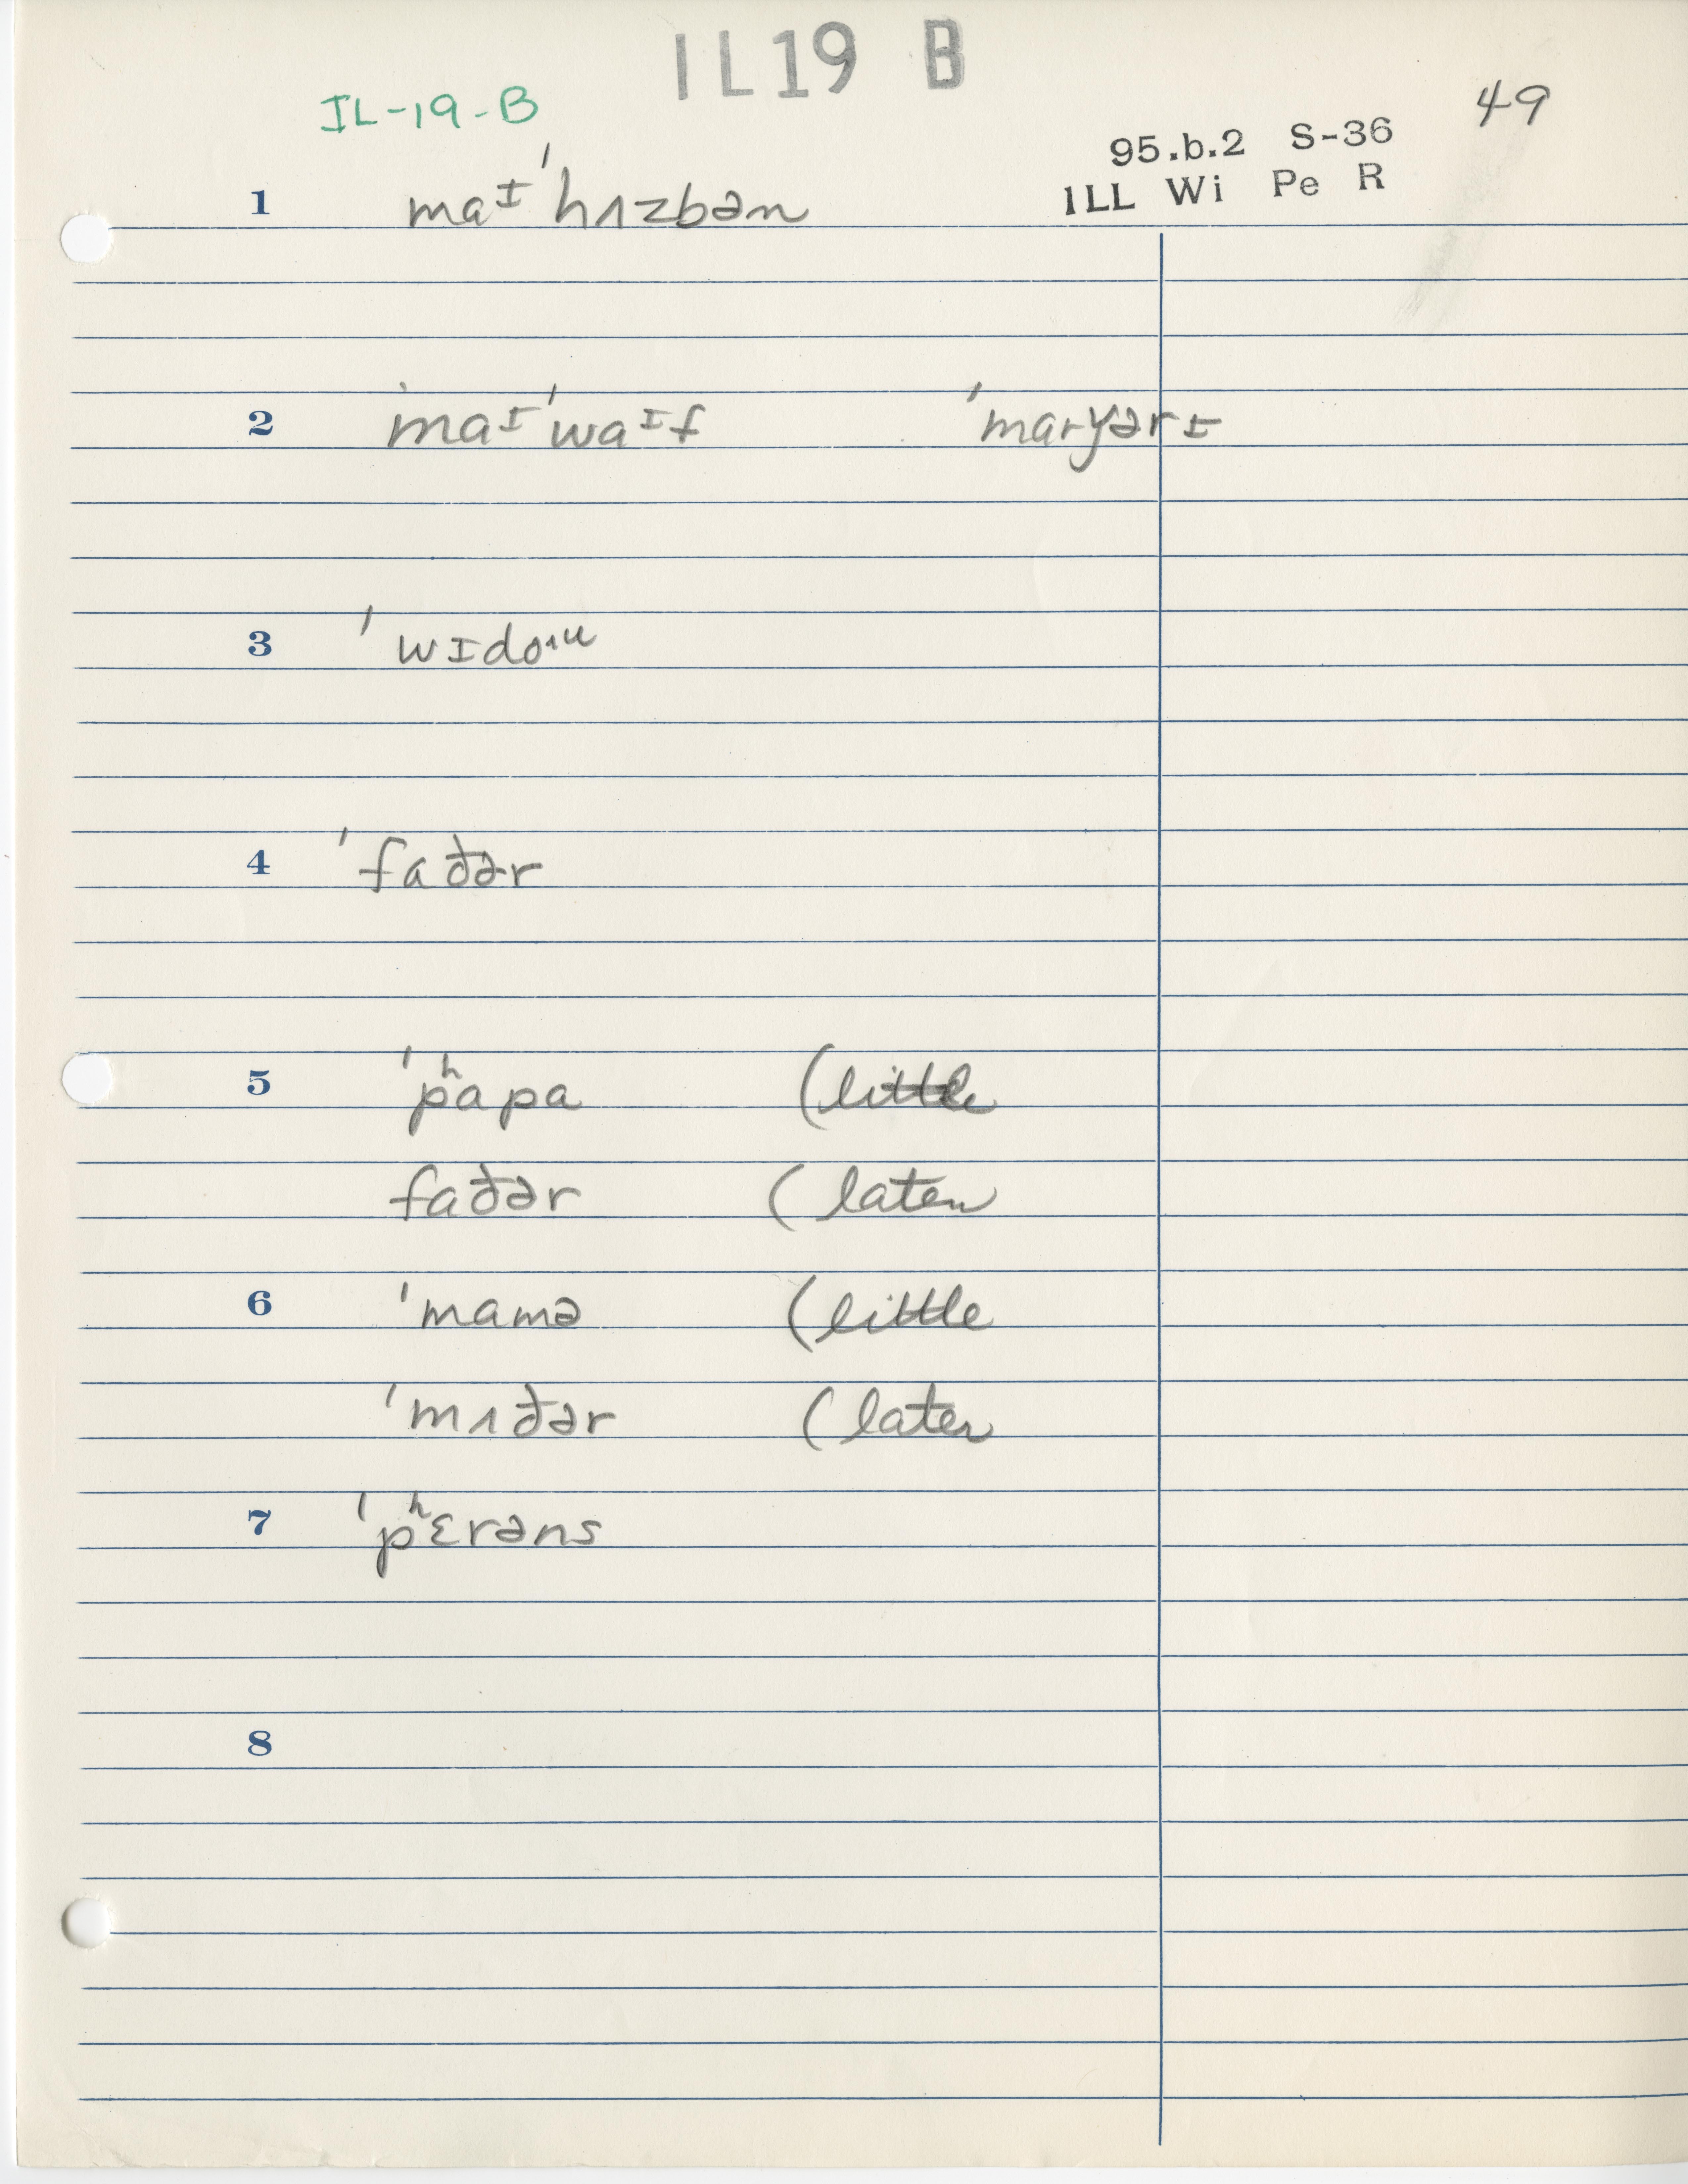 IL19 B
IL-19-B
49
95.b.2 S-36
ILL Wi Pe R
1 maᶦˈhʌzbən
2 maᶦˈwaᶦf ˈmarɣərɪ
3 ˈwɪdoᶺᵘ
4 ˈfaðər
5 ˈpʰapa (little
faðər (later
6 ˈmamə (little
ˈmʌðər (later
7 ˈpʰɛrəns
8